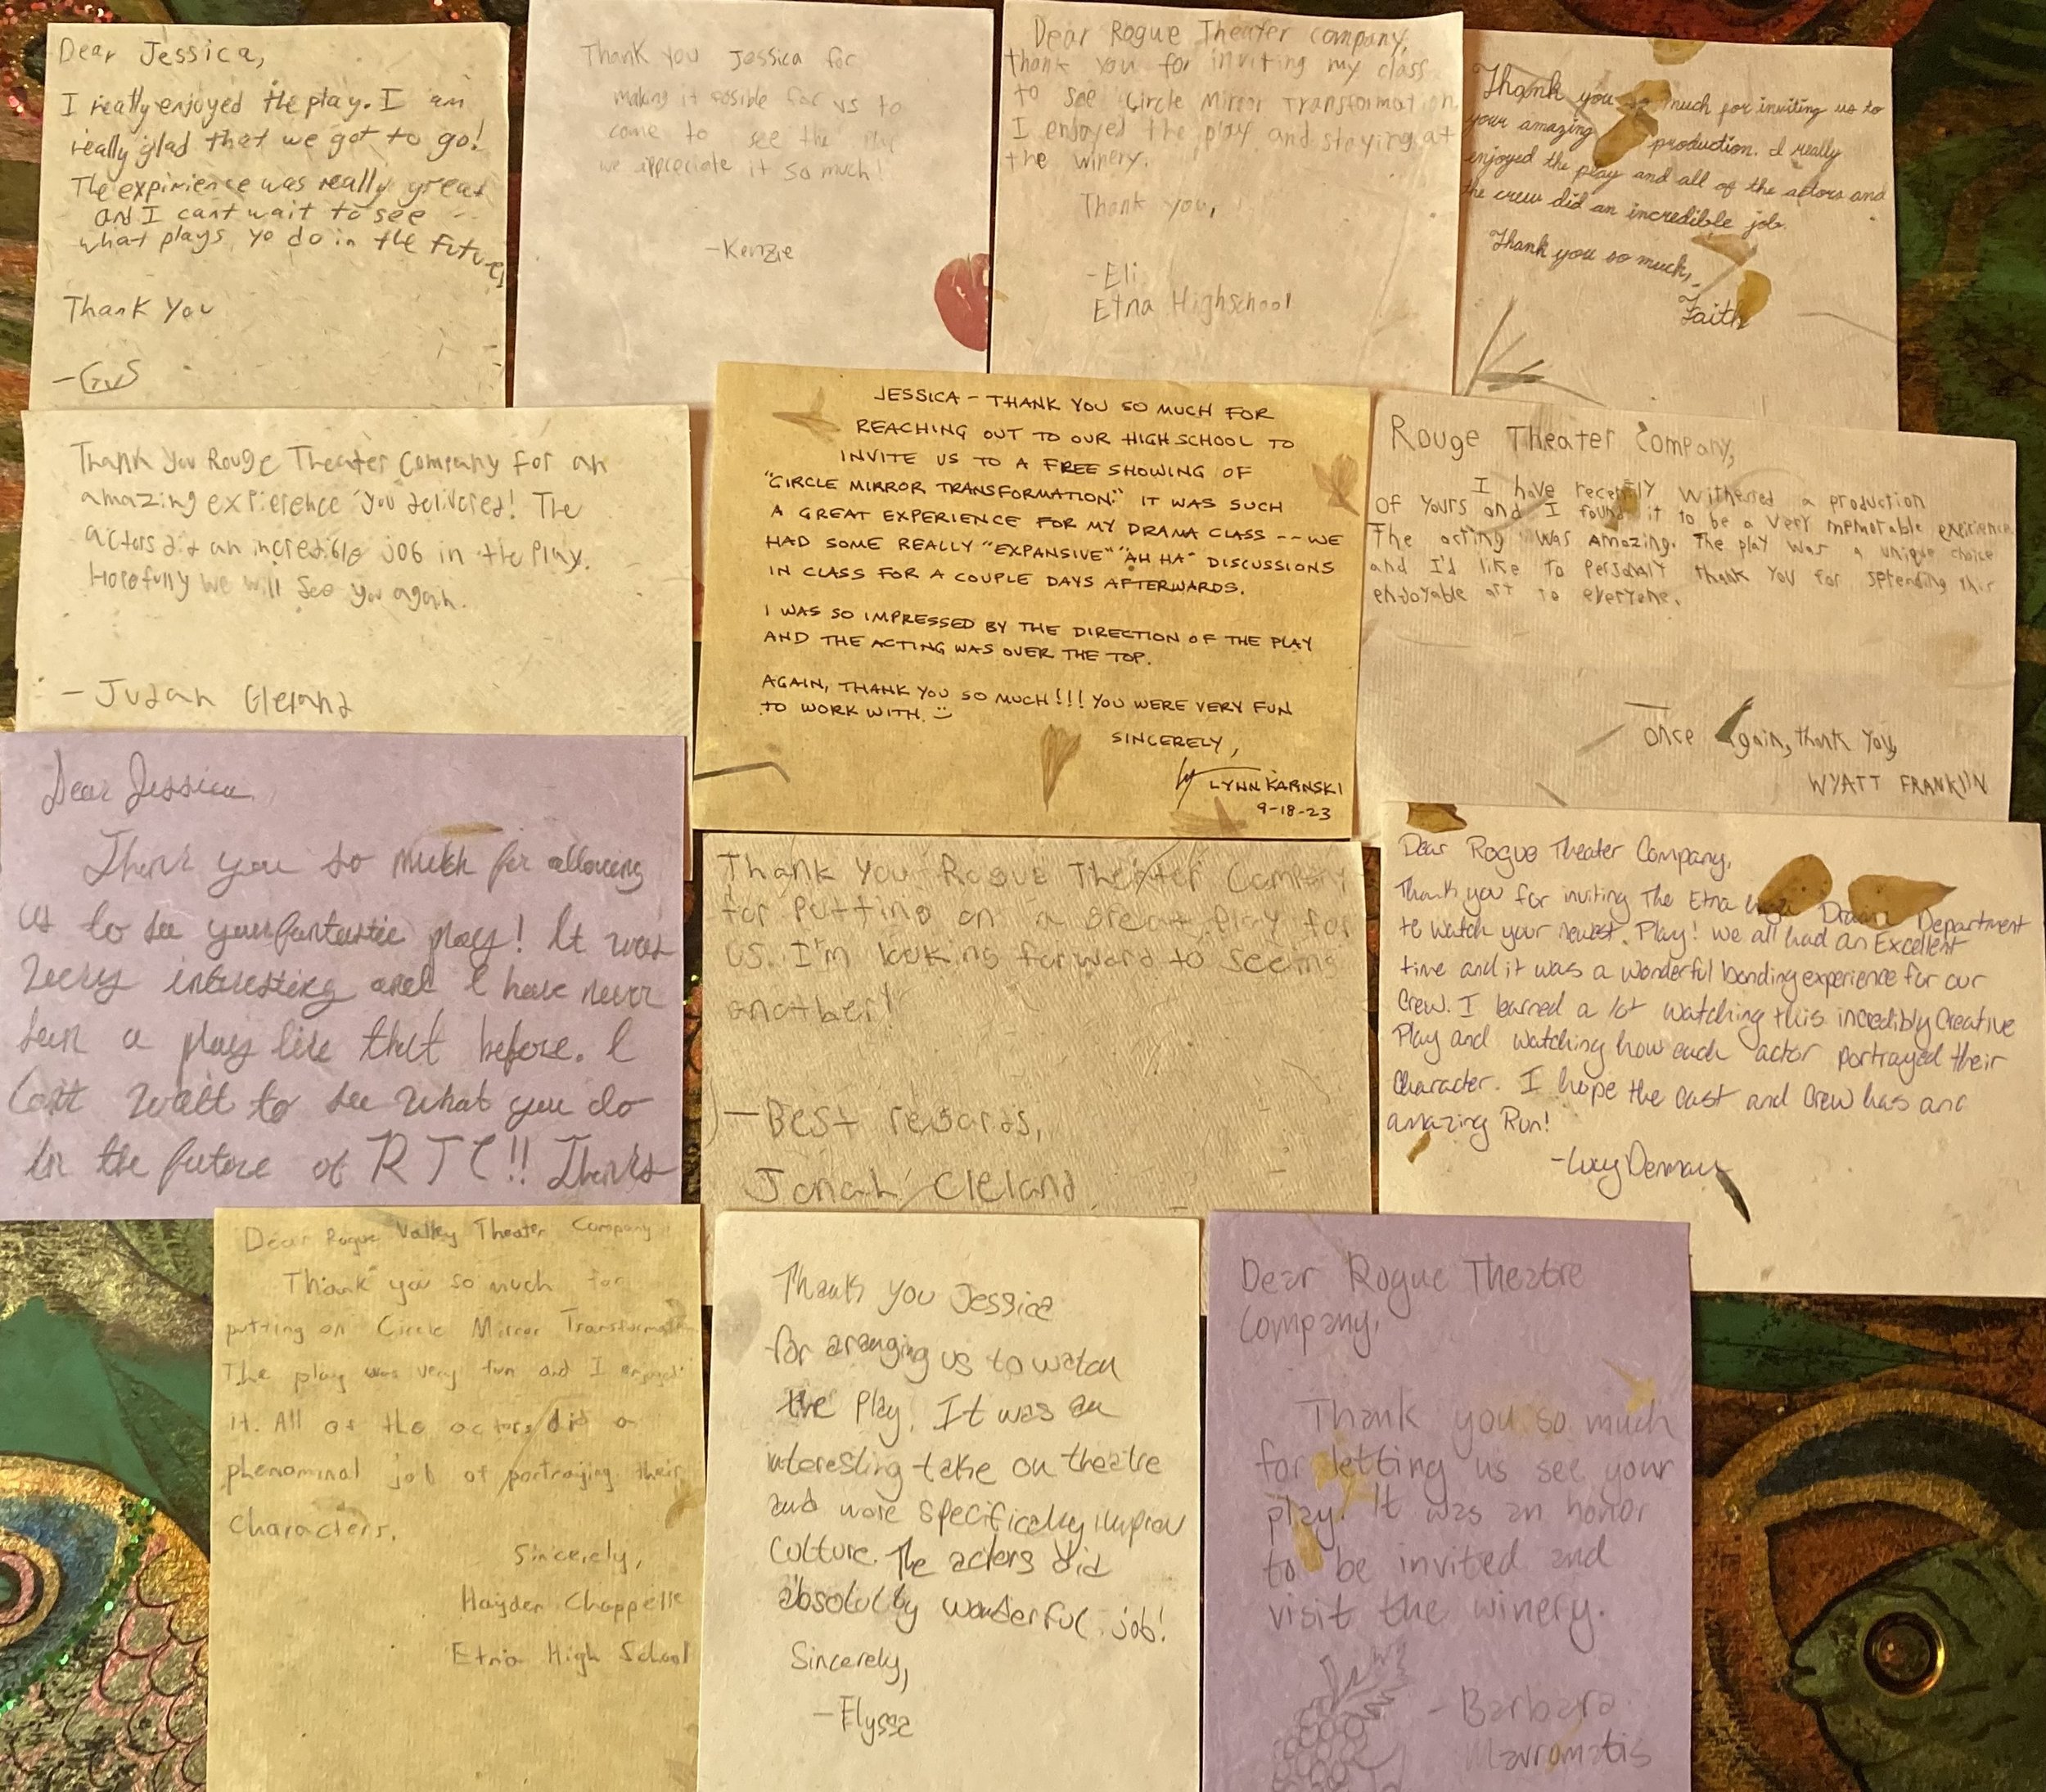 Dear Jessica,
I really enjoyed the play. I am
really glad that we got to go!
The expirience was really great
and I cant wait to see
what plays yo do in the future!
Thank You
-Gus
Thank you Jessica for
making it posible for us to
come to see the play
we appreciate it so much!
-Kenzie
Dear Rogue Theater company,
thank you for inviting my class
to see Circle Mirror Transformation
I enjoyed the play and staying at
the winery.
Thank you,
-Eli
Etna Highschool
Thank you so much for inviting us to
your amazing production. I really
enjoyed the play and all of the actors and
the crew did an incredible job.
Thank you so much,
Faith
Thank you Rouge Theater Company for an
amazing expierence you delivered! The
actors did an incredible job in the play.
Hopefully we will see you again.
- Judah Cleland
JESSICA - THANK YOU SO MUCH FOR
REACHING OUT TO OUR HIGH SCHOOL TO
INVITE US TO A FREE SHOWING OF
"CIRCLE MIRROR TRANSFORMATION." IT WAS SUCH
A GREAT EXPERIENCE FOR MY DRAMA CLASS -- WE
HAD SOME REALLY "EXPANSIVE" "AH HA" DISCUSSIONS
IN CLASS FOR A COUPLE DAYS AFTERWARDS.
I WAS SO IMPRESSED BY THE DIRECTION OF THE PLAY
AND THE ACTING WAS OVER THE TOP.
AGAIN, THANK YOU SO MUCH!!! YOU WERE VERY FUN
TO WORK WITH. :)
SINCERELY,
LYNN KARNSKI
9-18-23
Rouge Theater Company,
I have recently witnessed a production
of yours and I found it to be a very memorable experience.
The acting was amazing. The play was a unique choice
and I'd like to personaly thank you for spreading this
enjoyable art to everyone.
Once Again, thank you,
WYATT FRANKlIN
Dear Jessica,
Thank you so much for allowing
us to see your fantastic play! It was
very interesting and I have never
seen a play like that before. I
cant wait to see what you do
in the future of RTC!! Thanks
Thank you Rogue Theater Company
for putting on a great play for
us. I'm looking forward to seeing
another!
-Best regards,
Jonah Cleland
Dear Rogue Theater Company,
Thank you for inviting The Etna High Drama Department
to watch your newest Play! we all had an Excellent
time and it was a wonderful bonding experience for our
Crew. I learned a lot watching this incredibly Creative
Play and watching how each actor portrayed their
Character. I hope the cast and Crew has and
amazing Run!
-Lucy
Dear Rogue Valley Theater Company
Thank you so much for
putting on Circle Mirror Transformation
The play was very fun and I enjoyed
it. All of the actors did a
phenominal job of portraying their
Characters.
Sincerely,
Hayden Chappelle
Etna High School
Thank you Jessica
for aranging us to watch
the play. It was an
interesting take on theatre
and more specifically improv
culture. The actors did
absolutely wonderful job!
Sincerely,
-Elyssa
Dear Rogue Theatre
Company,
Thank you so much
for letting us see your
play. It was an honor
to be invited and
visit the winery.
- Barbara
Mavromatis